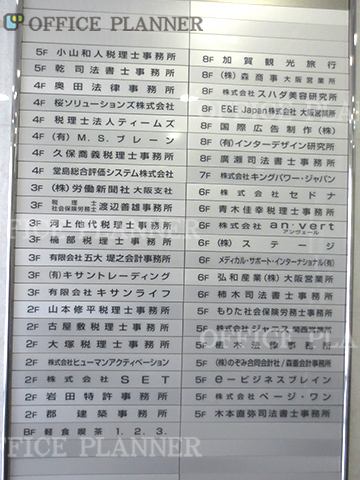 OFFICE PLANNER
5F 小山和人税理士事務所
5F 乾司法書士事務所
4F 奥田法律事務所
4F 桜ソリューションズ株式会社
4F 税理士法人ティームズ
4F (有)M.S.ブレーン
4F 久保喬義税理士事務所
4F 堂島総合評価システム株式会社
3F (株)労働新聞社 大阪支社
3F 税理士 社会保険労務士 渡辺善雄事務所
3F 河上他代税理士事務所
3F 税理士事務所
3F 有限会社五大 堤之会計事務所
3F (有)キサントレーディング
3F 有限会社キサンライフ
2F 山本修平税理士事務所
2F 古屋敷税理士事務所
2F 大塚税理士事務所
2F 株式会社ヒューマンアクティベーション
2F 株式会社SET
2F 岩田特許事務所
2F 郡建築事務所
BF 軽食喫茶 1.2.3.
8F 加賀観光旅行
8F (株)森商事 大阪営業所
8F 株式会社スハダ美容研究所
8F E&E Japan株式会社 大阪営業所
8F 国際広告制作(株)
8F (有)インターデザイン研究所
8F 廣瀬司法書士事務所
7F 株式会社キングパワー・ジャパン
6F 株式会社セドナ
6F 青木佳幸税理士事務所
6F 株式会社an·vert アンヴェール
6F (株)ステージ
6F メディカル・サポート・インターナショナル(有)
6F 弘和産業(株)大阪営業所
6F 柿木司法書士事務所
5F もりた社会保険労務士事務所
5F 株式会社ジャニス関西営業所
5F
5F (株)のぞみ合同会計社/森重会計事務所
5F e-ビジネスブレイン
5F 株式会社ページ・ワン
5F 木本直弥司法書士事務所
OFFICE PLANNER